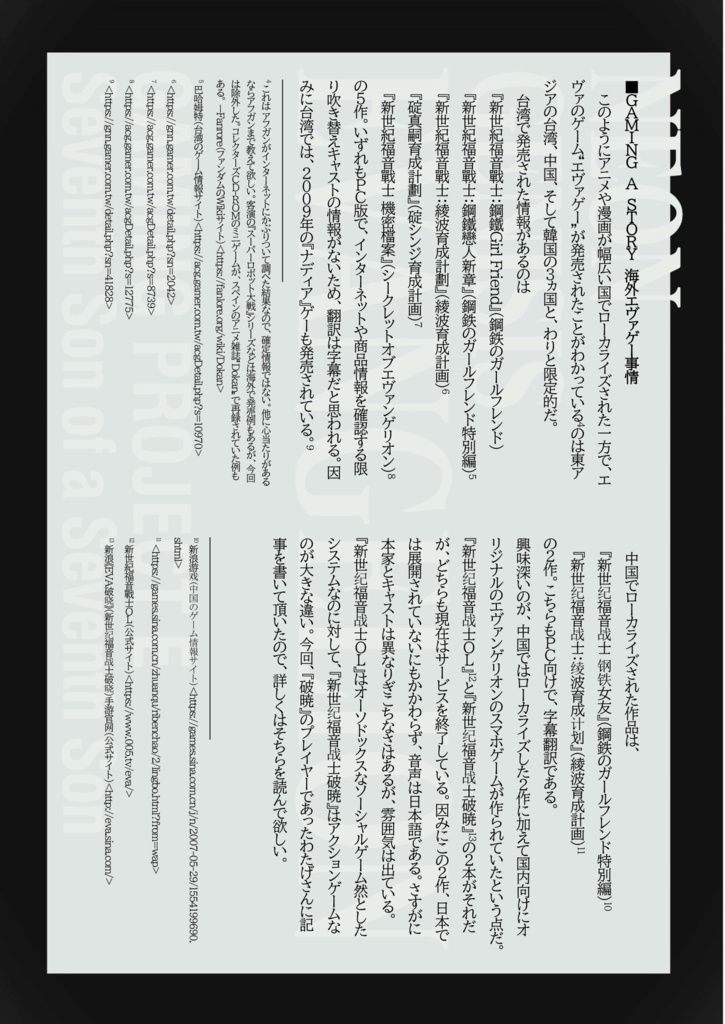 ■GAMING A STORY 海外エヴァゲー事情
このようにアニメや漫画が幅広い国でローカライズされた一方で、エ
ヴァのゲーム“エヴァゲー”が発売されたことがわかっている⁴のは東ア
ジアの台湾、中国、そして韓国の3ヵ国と、わりと限定的だ。
台湾で発売された情報があるのは
『新世紀福音戰士:鋼鐵Girl Friend』(鋼鉄のガールフレンド)
『新世紀福音戰士:鋼鐵戀人新章』(鋼鉄のガールフレンド特別編)⁵
『新世紀福音戰士:綾波育成計劃』(綾波育成計画)⁶
『碇真嗣育成計劃』(碇シンジ育成計画)⁷
『新世紀福音戰士 機密檔案』(シークレットオブエヴァンゲリオン)⁸
の5作。いずれもPC版で、インターネットや商品情報を確認する限
り吹き替えキャストの情報がないため、翻訳は字幕だと思われる。因
みに台湾では、2009年の『ナディア』ゲーも発売されている。⁹
⁴ これはアフガンがインターネットにかぶりついて調べた結果なので、確定情報ではない。他に心当たりがある
ならアフガンまで教えて欲しい。客演の『スーパーロボット大戦』シリーズなどは海外で発売例もあるが、今回
は除外した。コレクターズCD-ROMのミニゲームが、スペインのアニメ雑誌『Dokan』で再録されていた例も
ある。—Fanrore(ファンダムのWikiサイト)<https://fanlore.org/wiki/Dokan>
⁵ 巴哈姆特(台湾のゲーム情報サイト)<https://acg.gamer.com.tw/acgDetail.php?s=10970>
⁶ <https://gnn.gamer.com.tw/detail.php?sn=2042>
⁷ <https://acg.gamer.com.tw/acgDetail.php?s=8739>
⁸ <https://acg.gamer.com.tw/acgDetail.php?s=12775>
⁹ <https://gnn.gamer.com.tw/detail.php?sn=41828>
中国でローカライズされた作品は、
『新世纪福音战士 钢铁女友』(鋼鉄のガールフレンド特別編)¹⁰
『新世纪福音战士:绫波育成计划』(綾波育成計画)¹¹
の2作。こちらもPC向けで、字幕翻訳である。
興味深いのが、中国ではローカライズした2作に加えて国内向けにオ
リジナルのエヴァンゲリオンのスマホゲームが作られていたという点だ。
『新世纪福音战士OL』¹²と『新世纪福音战士破晓』¹³の2本がそれだ
が、どちらも現在はサービスを終了している。因みにこの2作、日本で
は展開されていないにもかかわらず、音声は日本語である。さすがに
本家とキャストは異なりぎこちなさはあるが、雰囲気は出ている。
『新世纪福音战士OL』はオーソドックスなソーシャルゲーム然とした
システムなのに対して、『新世纪福音战士破晓』はアクションゲームな
のが大きな違い。今回、『破暁』のプレイヤーであったわたげさんに記
事を書いて頂いたので、詳しくはそちらを読んで欲しい。
¹⁰ 新浪游戏(中国のゲーム情報サイト)<https://games.sina.com.cn/j/n/2007-05-29/1554199690.
shtml>
¹¹ <https://games.sina.com.cn/zhuanqu/ribenchao/2/lingbo.html?from=wap>
¹² 新世紀福音戰士OL(公式サイト)<https://www.005.tv/eva/>
¹³ 新浪《EVA破晓》(新世纪福音战士破晓)手游官网(公式サイト)<http://eva.sina.com/>